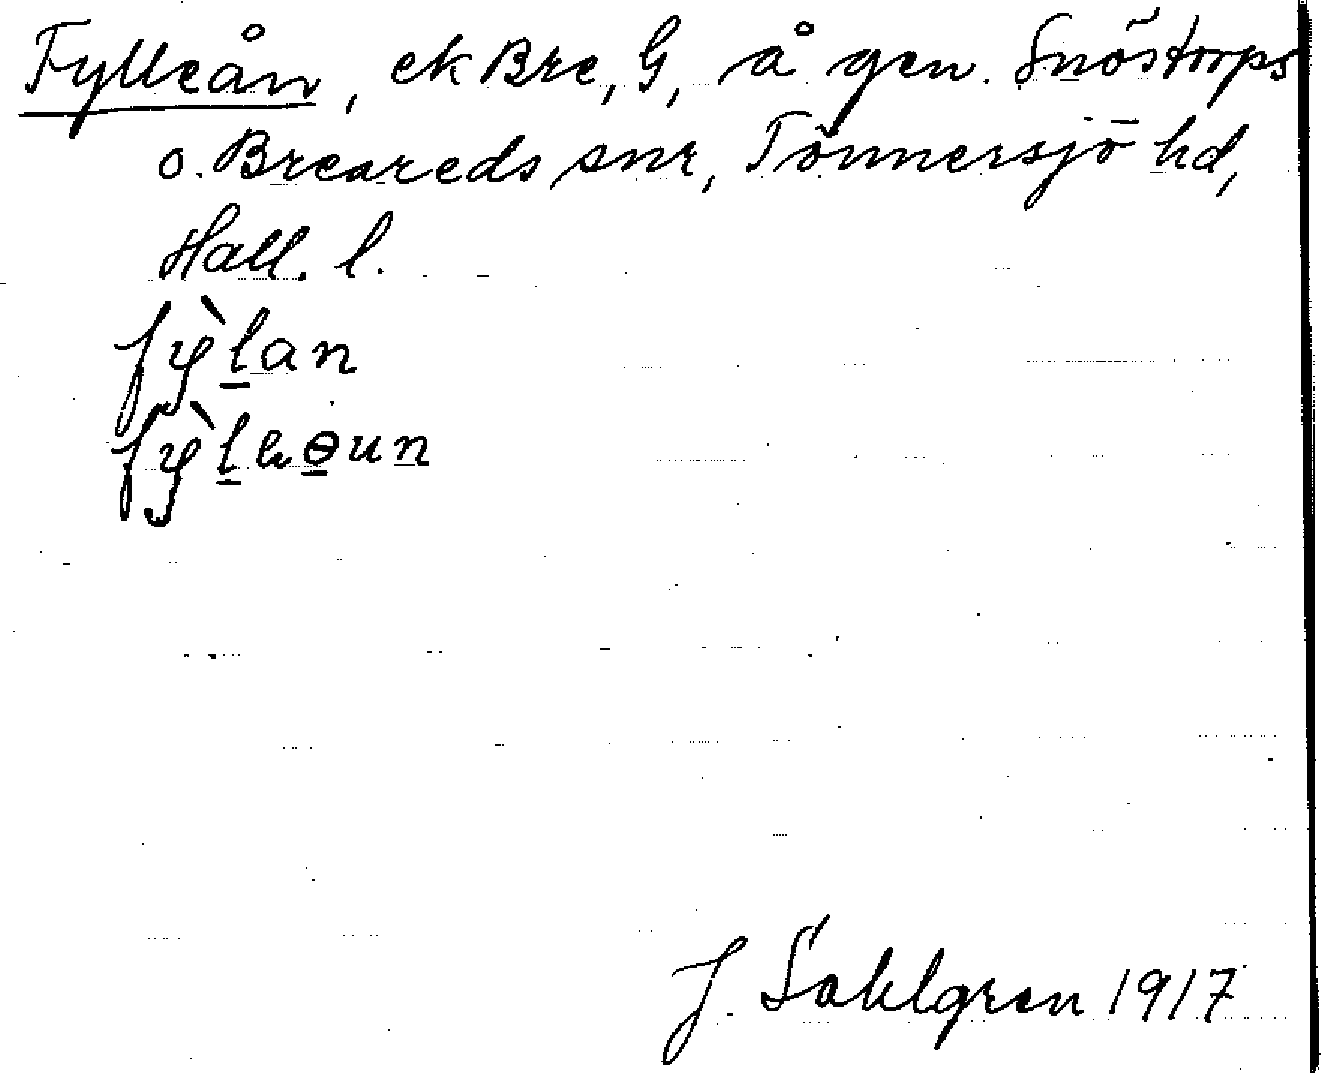 Fylleån, ek Bre, G, å gen. Snöstorps
o. Breareds snr, Tönnersjö hd,
Hall. l.
fỳlan
J. Sahlgren 1917